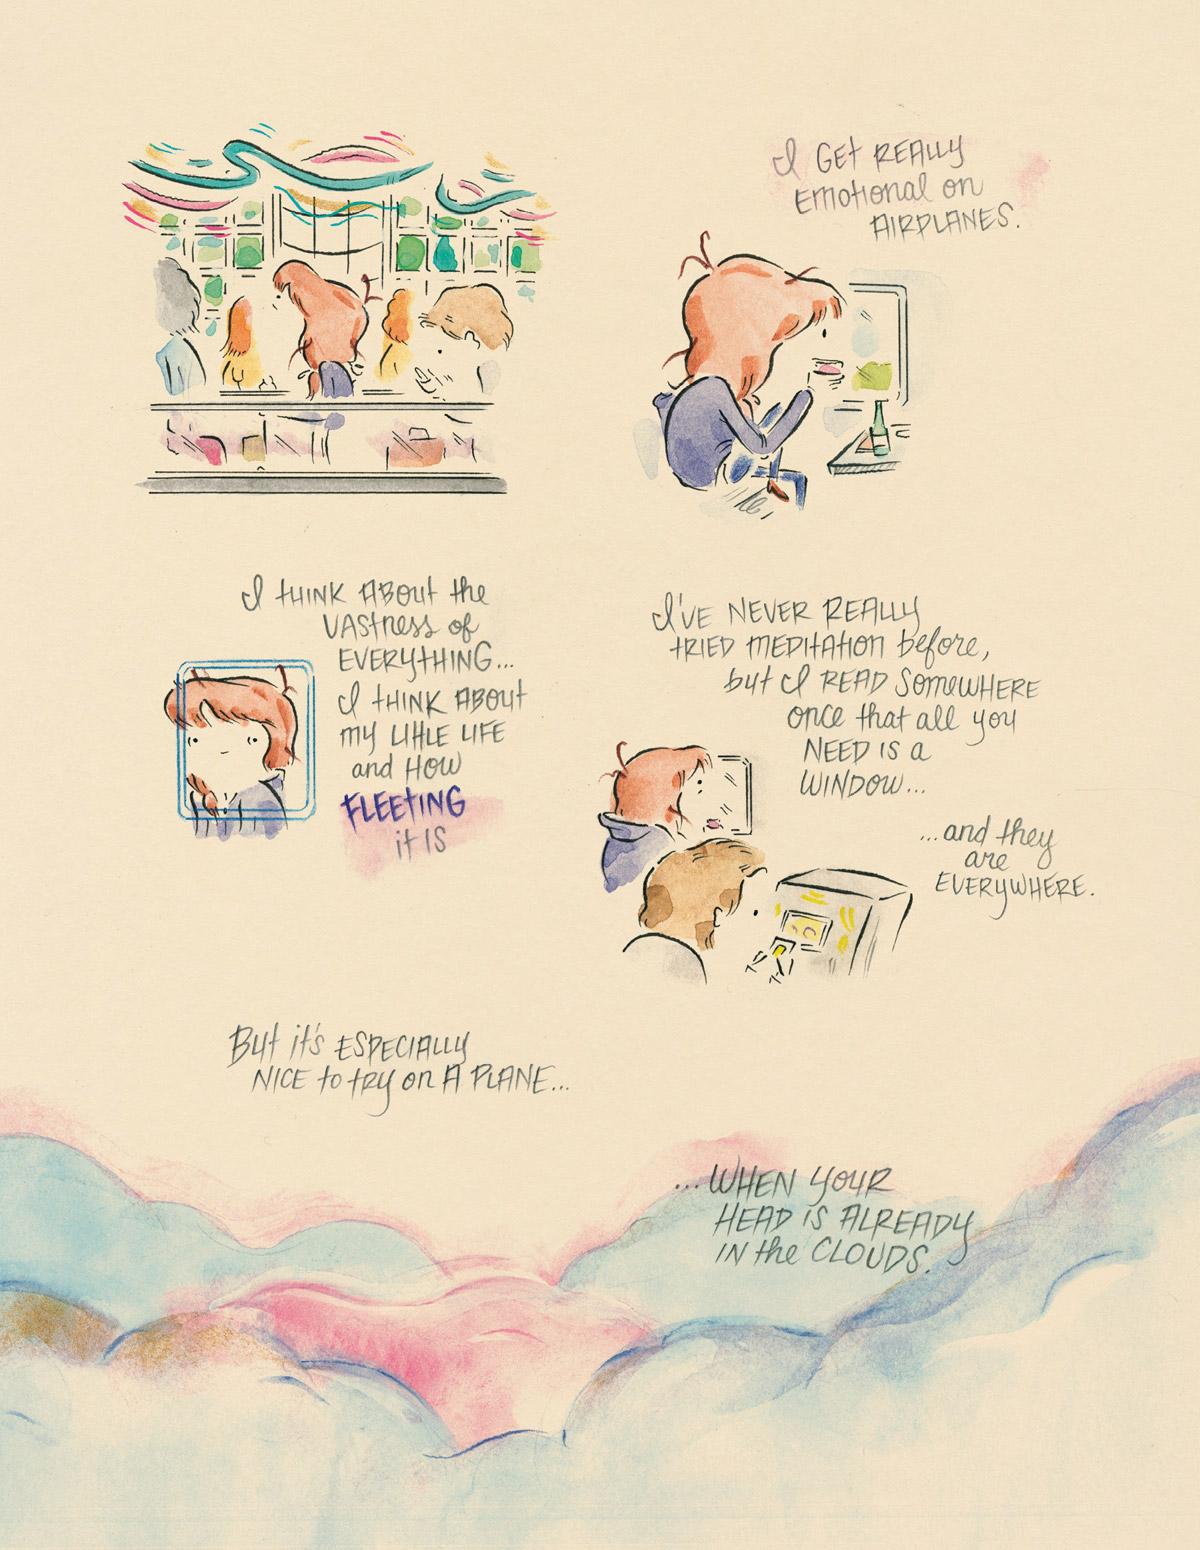 I GET REALLY
EMOTIONAL ON
AIRPLANES.
I THINK ABOUT the
VASTNESS of
EVERYTHING...
I THINK ABOUT
MY LITTLE LIFE
and HOW
FLEETING
it IS
I'VE NEVER REALLY
tRIED MEDITATION before,
but I READ SOMEWHERE
once that all you
NEED IS a
WINDOW...
...and they
are
EVERYWHERE.
But it's ESPECIALLY
NICE to try on A PLANE...
...WHEN YOUR
HEAD IS ALREADY
IN the CLOUDS.